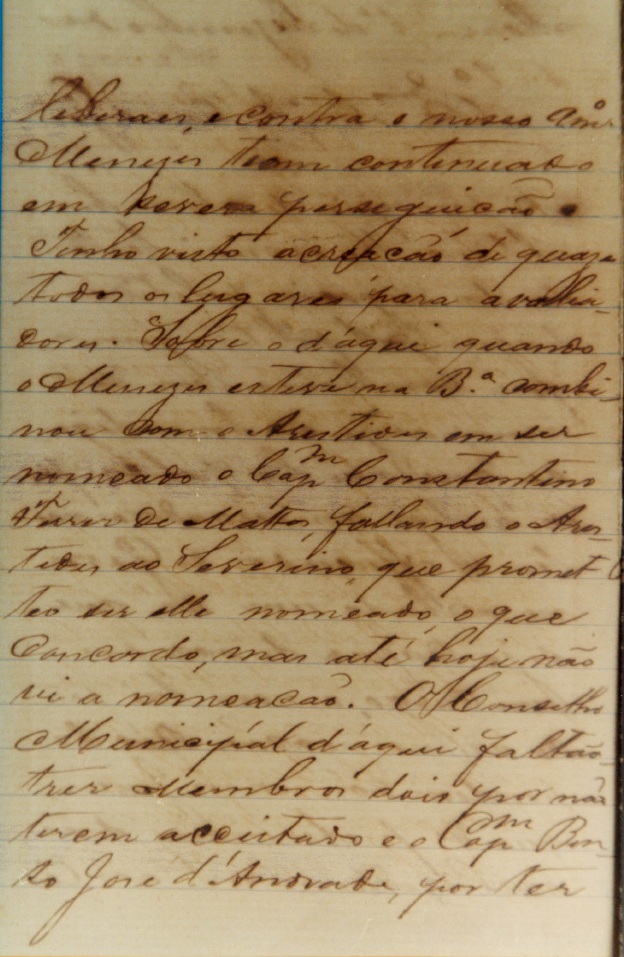 liberaes, e contra o nosso Am.º
Menezes team continuado
em severa perseguicão.
Tinho visto acreacão de quaze
todos os lugares para avalia-
dores. Sobre o d'aqui quando
o Menezes esteve na B.ª combi-
nou com o Aristides em ser
nomeado o Cap.m Constantino
de Mattos, fallando o Aris-
tides ao Severino, que promet-
teo ser elle nomeado, o que
Concordo, mas até hoje não
vi a nomeacão. O Conselho
Municipal d'aqui faltão
tres Membros dois por não
terem acceitado e o Cap.m Ben-
to Jose d'Andrade, por ter